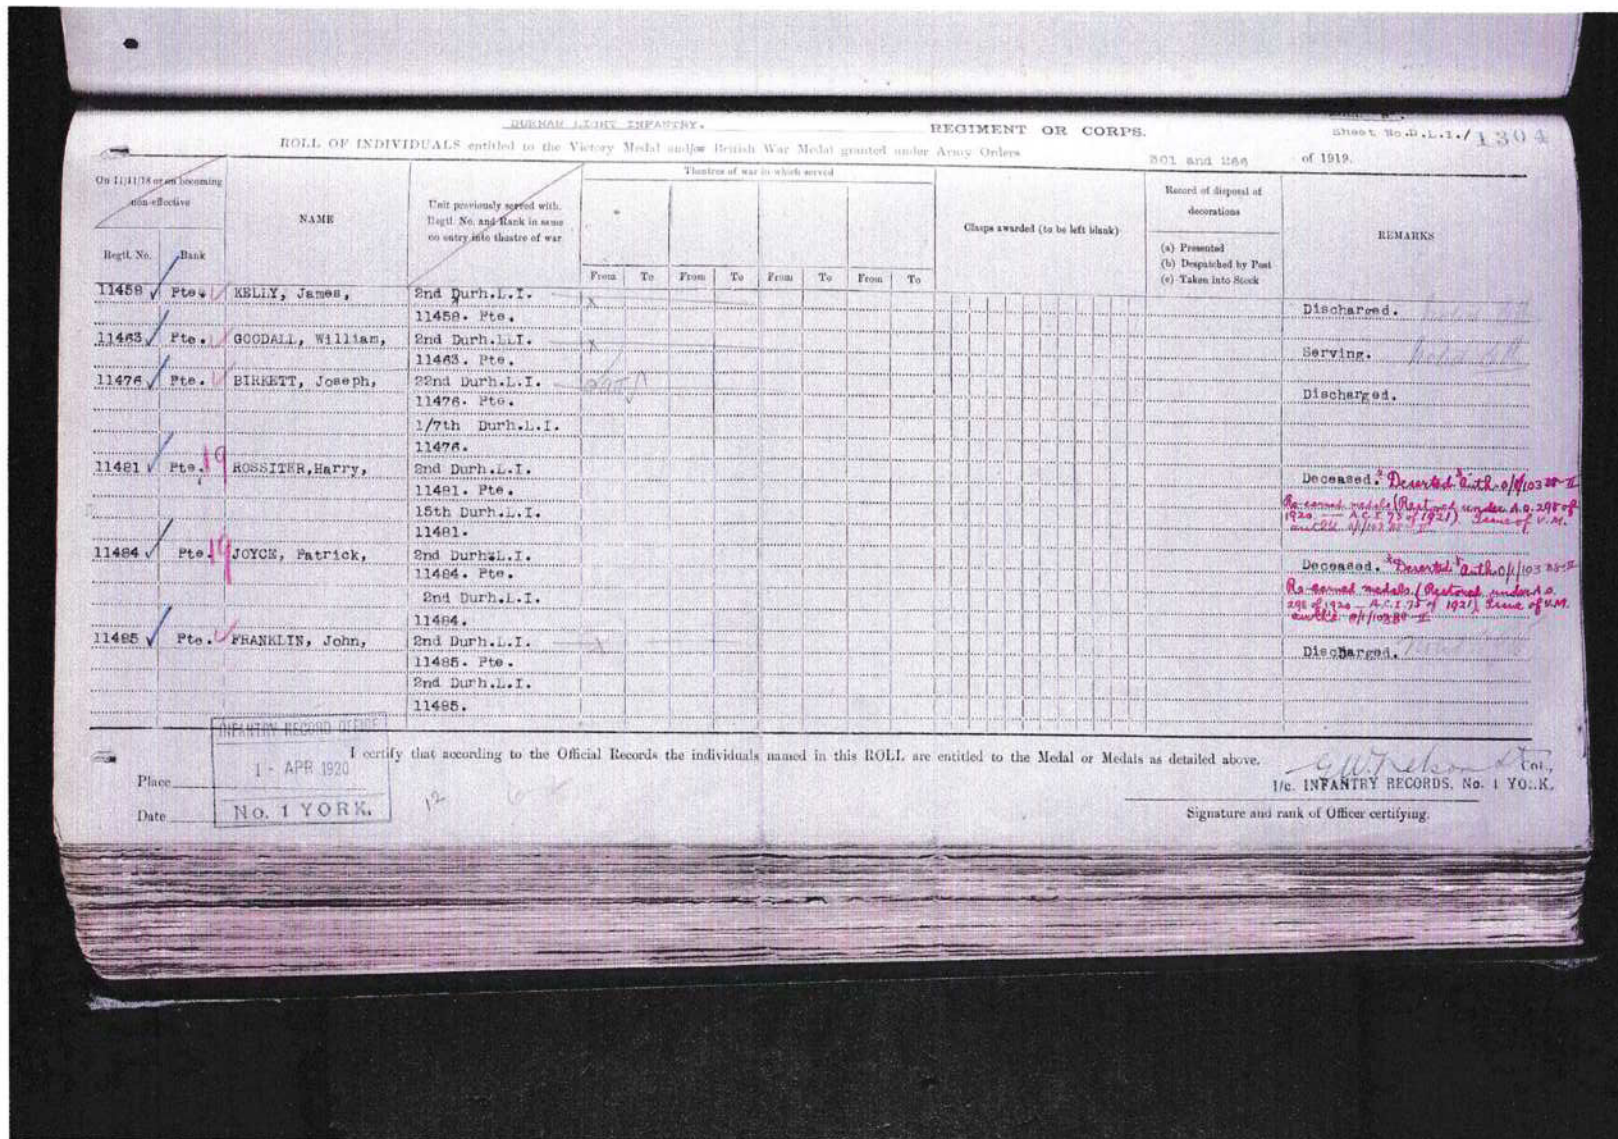 DURHAM LIGHT INFANTRY. REGIMENT OR CORPS. Sheet No.D.L.I./1304
ROLL OF INDIVIDUALS entitled to the Victory Medal and/or British War Medal granted under Army Orders 301 and 266 of 1919.
On 11/11/18 or on becoming non-effective
Regtl. No. Rank
NAME
Unit previously served with. Regtl. No. and Rank in same on entry into theatre of war
Theatres of war in which served
From To From To From To From To
Clasps awarded (to be left blank)
Record of disposal of decorations
(a) Presented
(b) Despatched by Post
(c) Taken into Stock
REMARKS
11458 Pte. KELLY, James, 2nd Durh.L.I.
11458. Pte. Discharged.
11463 Pte. GOODALL, William, 2nd Durh.LLI.
11463. Pte. Serving.
11476 Pte. BIRKETT, Joseph, 22nd Durh.L.I.
11476. Pte. Discharged.
1/7th Durh.L.I.
11476.
11481 Pte. 19 ROSSITER,Harry, 2nd Durh.L.I.
11481. Pte. Deceased. "Deserted" Auth. 0/1/10388-II
15th Durh.L.I. Re-earned medals (Restored under A.O. 298 of
11481. 1920 — A.C.I. 75 of 1921). Issue of V.M.
11484 Pte. 19 JOYCE, Patrick, 2nd Durh.L.I.
11484. Pte. Deceased. "Deserted" Auth. 0/1/10388-II
2nd Durh.L.I. Re-earned medals (Restored under A.O.
11484. 298 of 1920 — A.C.I. 75 of 1921). Issue of V.M.
11485 Pte. FRANKLIN, John, 2nd Durh.L.I.
11485. Pte. Discharged.
2nd Durh.L.I.
11485.
INFANTRY RECORD OFFICE
1 - APR 1920
No. 1 YORK.
I certify that according to the Official Records the individuals named in this ROLL are entitled to the Medal or Medals as detailed above.
Place
Date
12
Col.,
I/c. INFANTRY RECORDS, No. 1 YORK.
Signature and rank of Officer certifying.